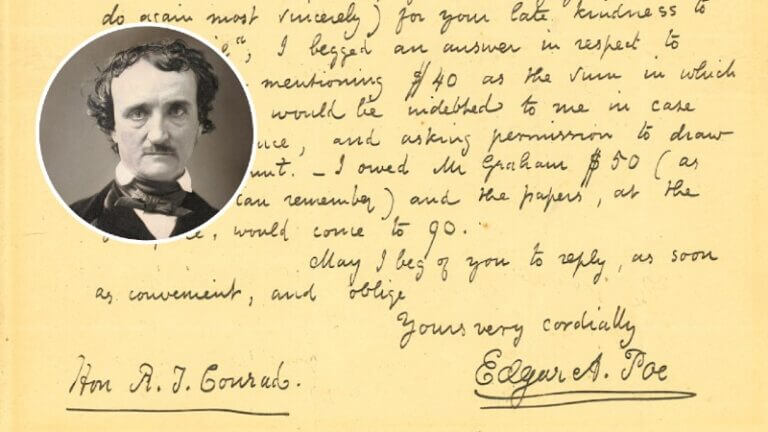 do again most sincerely) for your late kindness to
I begged an answer in respect to
mentioning $40 as the sum in which
would be indebted to me in case
and asking permission to draw
I owed Mr Graham $50 (as
can remember) and the papers, at the
would come to 90.
May I beg of you to reply, as soon
as convenient, and oblige
Yours very cordially
Edgar A. Poe
Hon R. T. Conrad.